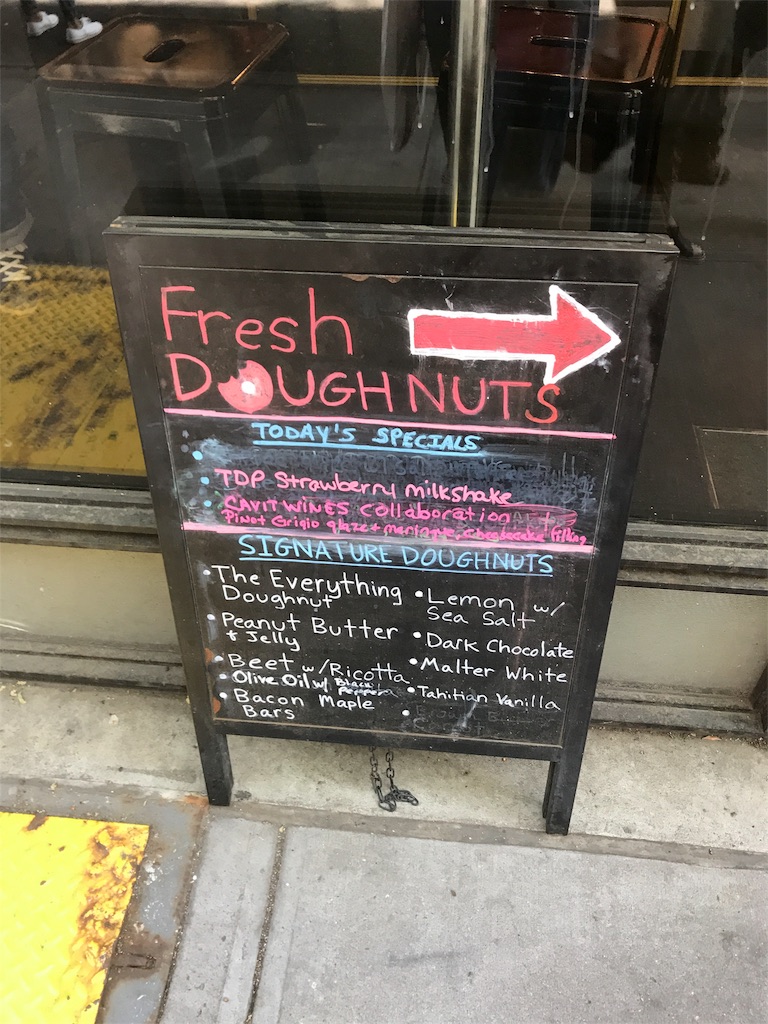 Fresh
DOUGHNUTS
TODAY'S SPECIALS
TDP Strawberry Milkshake
CAVIT WINES collaboration
Pinot Grigio glaze + meringue, cheesecake filling
SIGNATURE DOUGHNUTS
• The Everything
Doughnut
• Peanut Butter
+ Jelly
• Beet w/Ricotta
• Olive Oil w/ Black
• Bacon Maple
Bars
• Lemon w/
Sea Salt
• Dark Chocolate
• Malter White
• Tahitian Vanilla